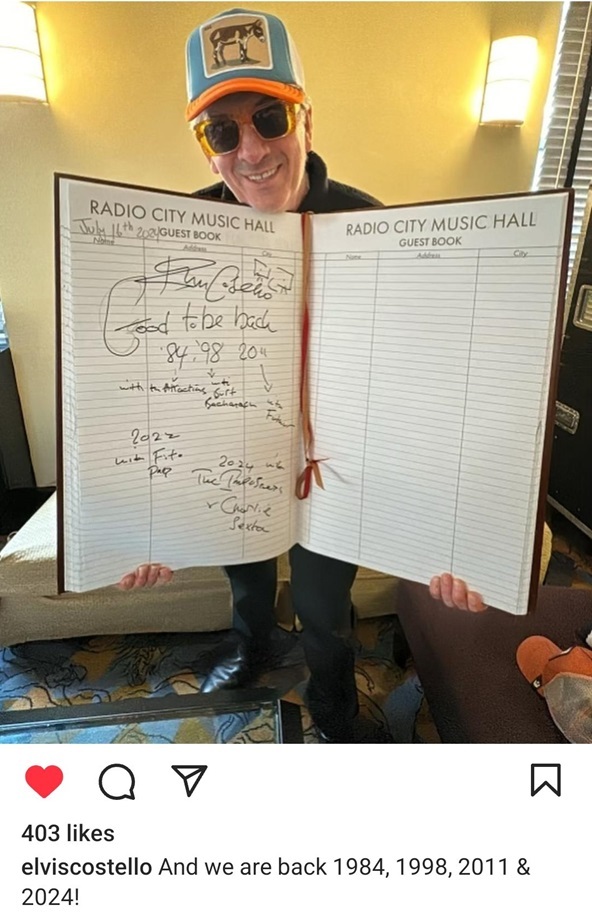 RADIO CITY MUSIC HALL
July 16th 2024 GUEST BOOK
Name Address City
Elvis Costello
Good to be back
'84 '98 2011
with the Attractions with Burt
Bacharach with
2022
with Fito
Paez
2024 with
The Imposters
+ Charlie
Sexton
RADIO CITY MUSIC HALL
GUEST BOOK
Name Address City
403 likes
elviscostello And we are back 1984, 1998, 2011 &
2024!